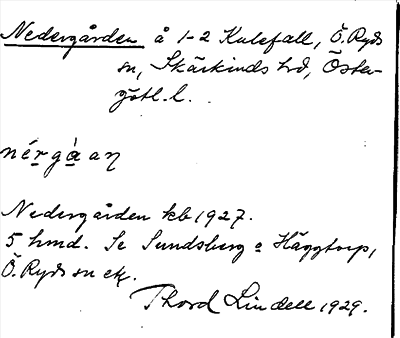 Nedergården å 1-2 Kulefall, Ö. Ryds
sn, Skärkinds hd, Öster-
götl. l.
nérgàaη
Nedergården kb 1927.
5 hmd. Se Sundsberg o Häggtorp,
Ö. Ryds sn etc.
Thord Lindell 1929.